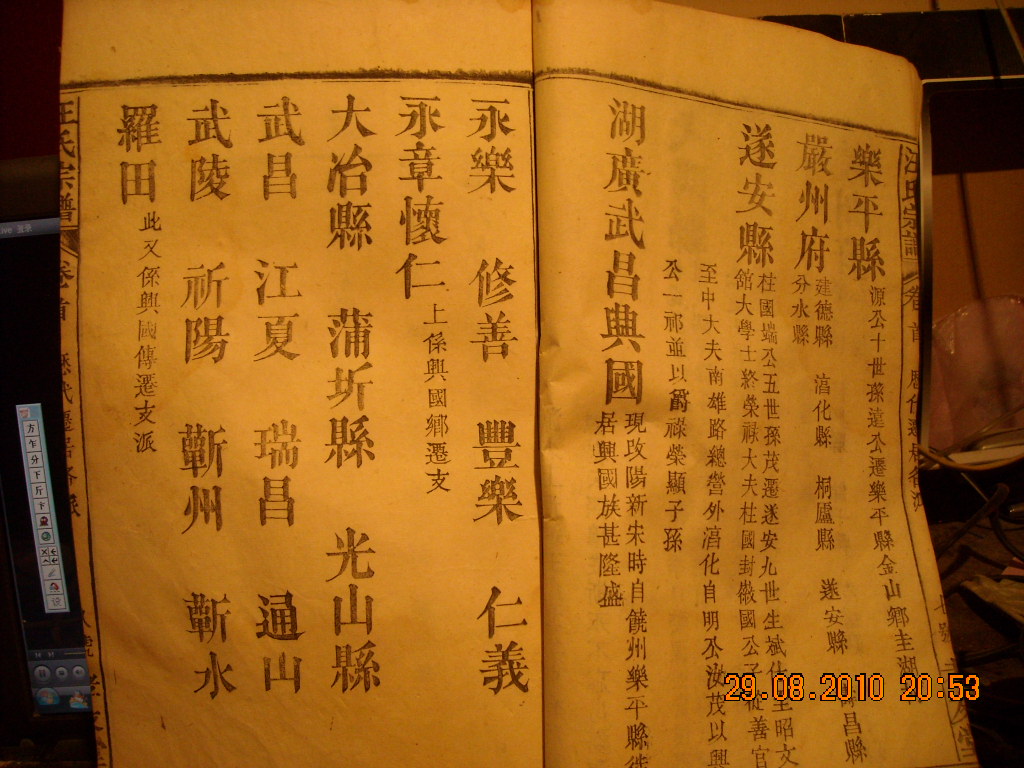 汪氏宗譜 卷首
樂平縣 源公十世孫遠公遷樂平縣金山鄉圭湖
嚴州府 建德縣 淳化縣 桐廬縣 遂安縣 昌縣
分水縣
遂安縣 柱國端公五世孫茂遷遂安九世生斌仕至昭文
舘大學士終榮祿大夫柱國封徽國公子從善官
至中大夫南雄路總管外淳化自明公汝茂以興
公一祁並以爵祿榮顯子孫
湖廣武昌興國 現改陽新宋時自饒州樂平縣徙
居興國族甚隆盛
永樂 修善 豐樂 仁義
永章 懷仁 上係興國鄉遷支
大冶縣 蒲圻縣 光山縣
武昌 江夏 瑞昌 通山
武陵 祈陽 蘄州 蘄水
羅田 此又係興國傳遷支派
汪氏宗譜 卷首
29.08.2010 20:53